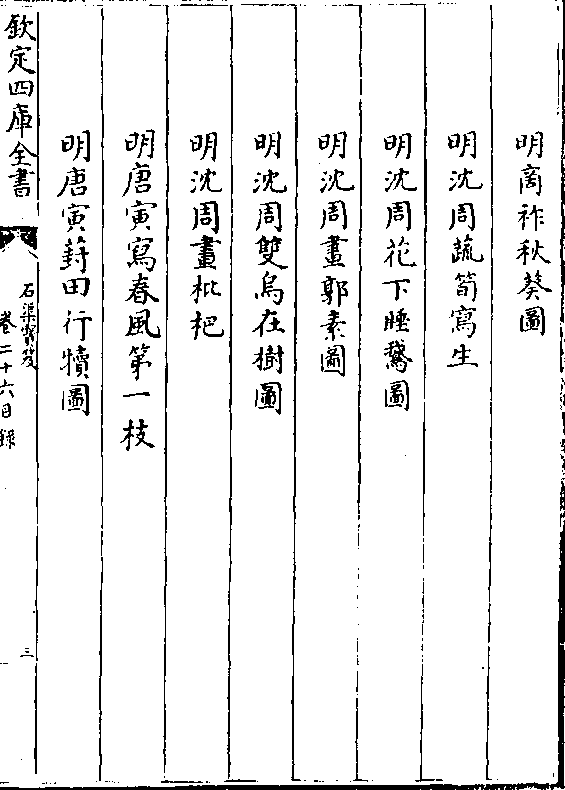 明商祚秋葵圖
明沈周蔬筍寫生
明沈周花下睡鵞圖
明沈周畫郭素圖
明沈周雙烏在樹圖
明沈周畫枇杷
明唐寅寫春風第一枝
明唐寅葑田行犢圖
欽定四庫全書
石渠寶笈
卷二十六目錄
三